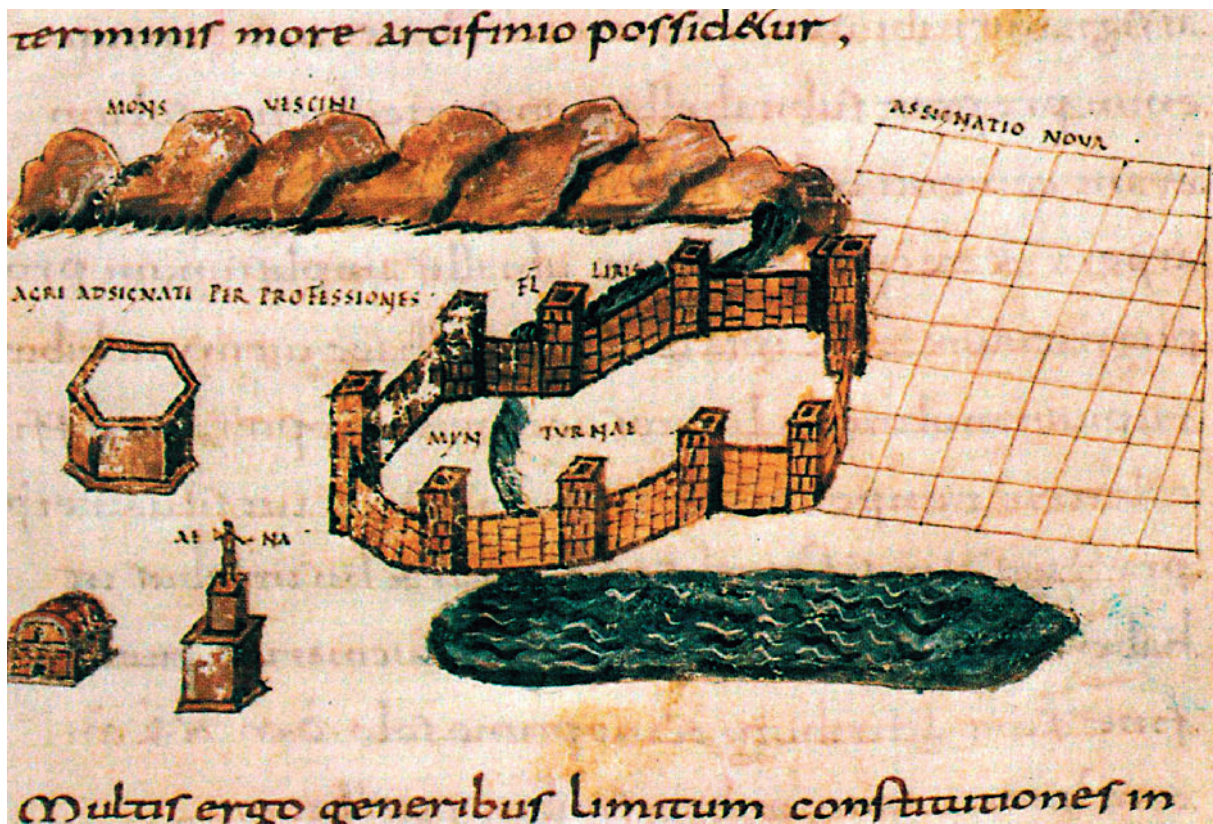 terminis more arcifinio possidetur,
MONS VESCINI
ASSIGNATIO NOVA
FL LIRIS
AGRI ADSIGNATI PER PROFESSIONES
MYN TURNAE
AE NA
Multis ergo generibus limitum constitutiones in